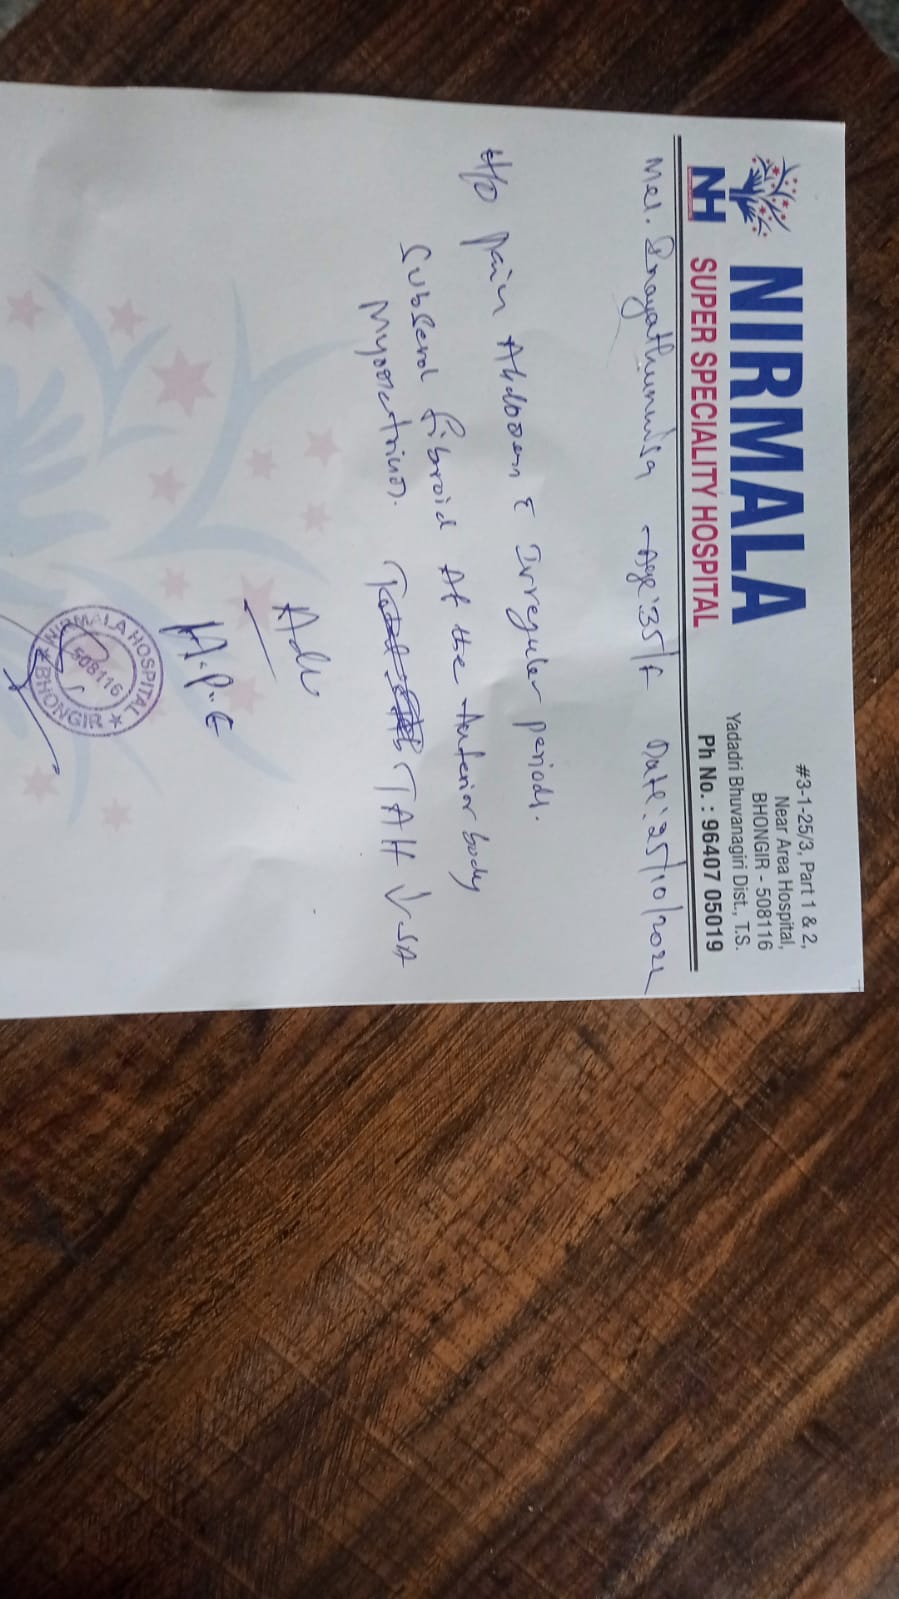 NIRMALA
NH SUPER SPECIALITY HOSPITAL
#3-1-25/3, Part 1 & 2,
Near Area Hospital,
BHONGIR - 508116
Yadadri Bhuvanagiri Dist., T.S.
Ph No. : 96407 05019
Age: 35/F Date: 25/10/202
H/o pain Abdomen Irregular periods.
Subserol fibroid At the Anterior body
TAH
Adv
H.P.E
NIRMALA HOSPITAL
508116
BHONGIR